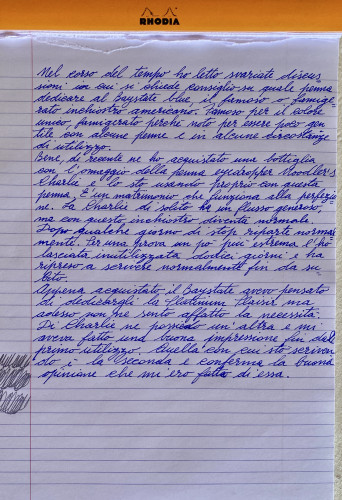 RHODIA
Nel corso del tempo ho letto svariate discus
sioni in cui si chiede consiglio su quale penna
dedicare al Baystate blue, il famoso o famige
rato inchiostro americano. Famoso per il colore
unico, famigerato perché noto per essere poco gen
tile con alcune penne e in alcune circostanze
di utilizzo.
Bene, di recente ne ho acquistato una bottiglia
con l'omaggio della penna eyedropper Noodler's
Charlie e lo sto usando proprio con questa
penna. È un matrimonio che funziona alla perfezio
ne. La Charlie di solito ha un flusso generoso,
ma con questo inchiostro diventa normale.
Dopo qualche giorno di stop riparte normal
mente. Per una prova un po' più estrema l'ho
lasciata inutilizzata dodici giorni e ha
ripreso a scrivere normalmente fin da su
bito.
Appena acquistato il Baystate avevo pensato
di dedicargli la Platinum Plaisir ma
adesso non ne sento affatto la necessità.
Di Charlie ne possiedo un'altra e mi
aveva fatto una buona impressione fin dal
primo utilizzo. Quella con cui sto scriven
do è la seconda e conferma la buona
opinione che mi ero fatta di essa.